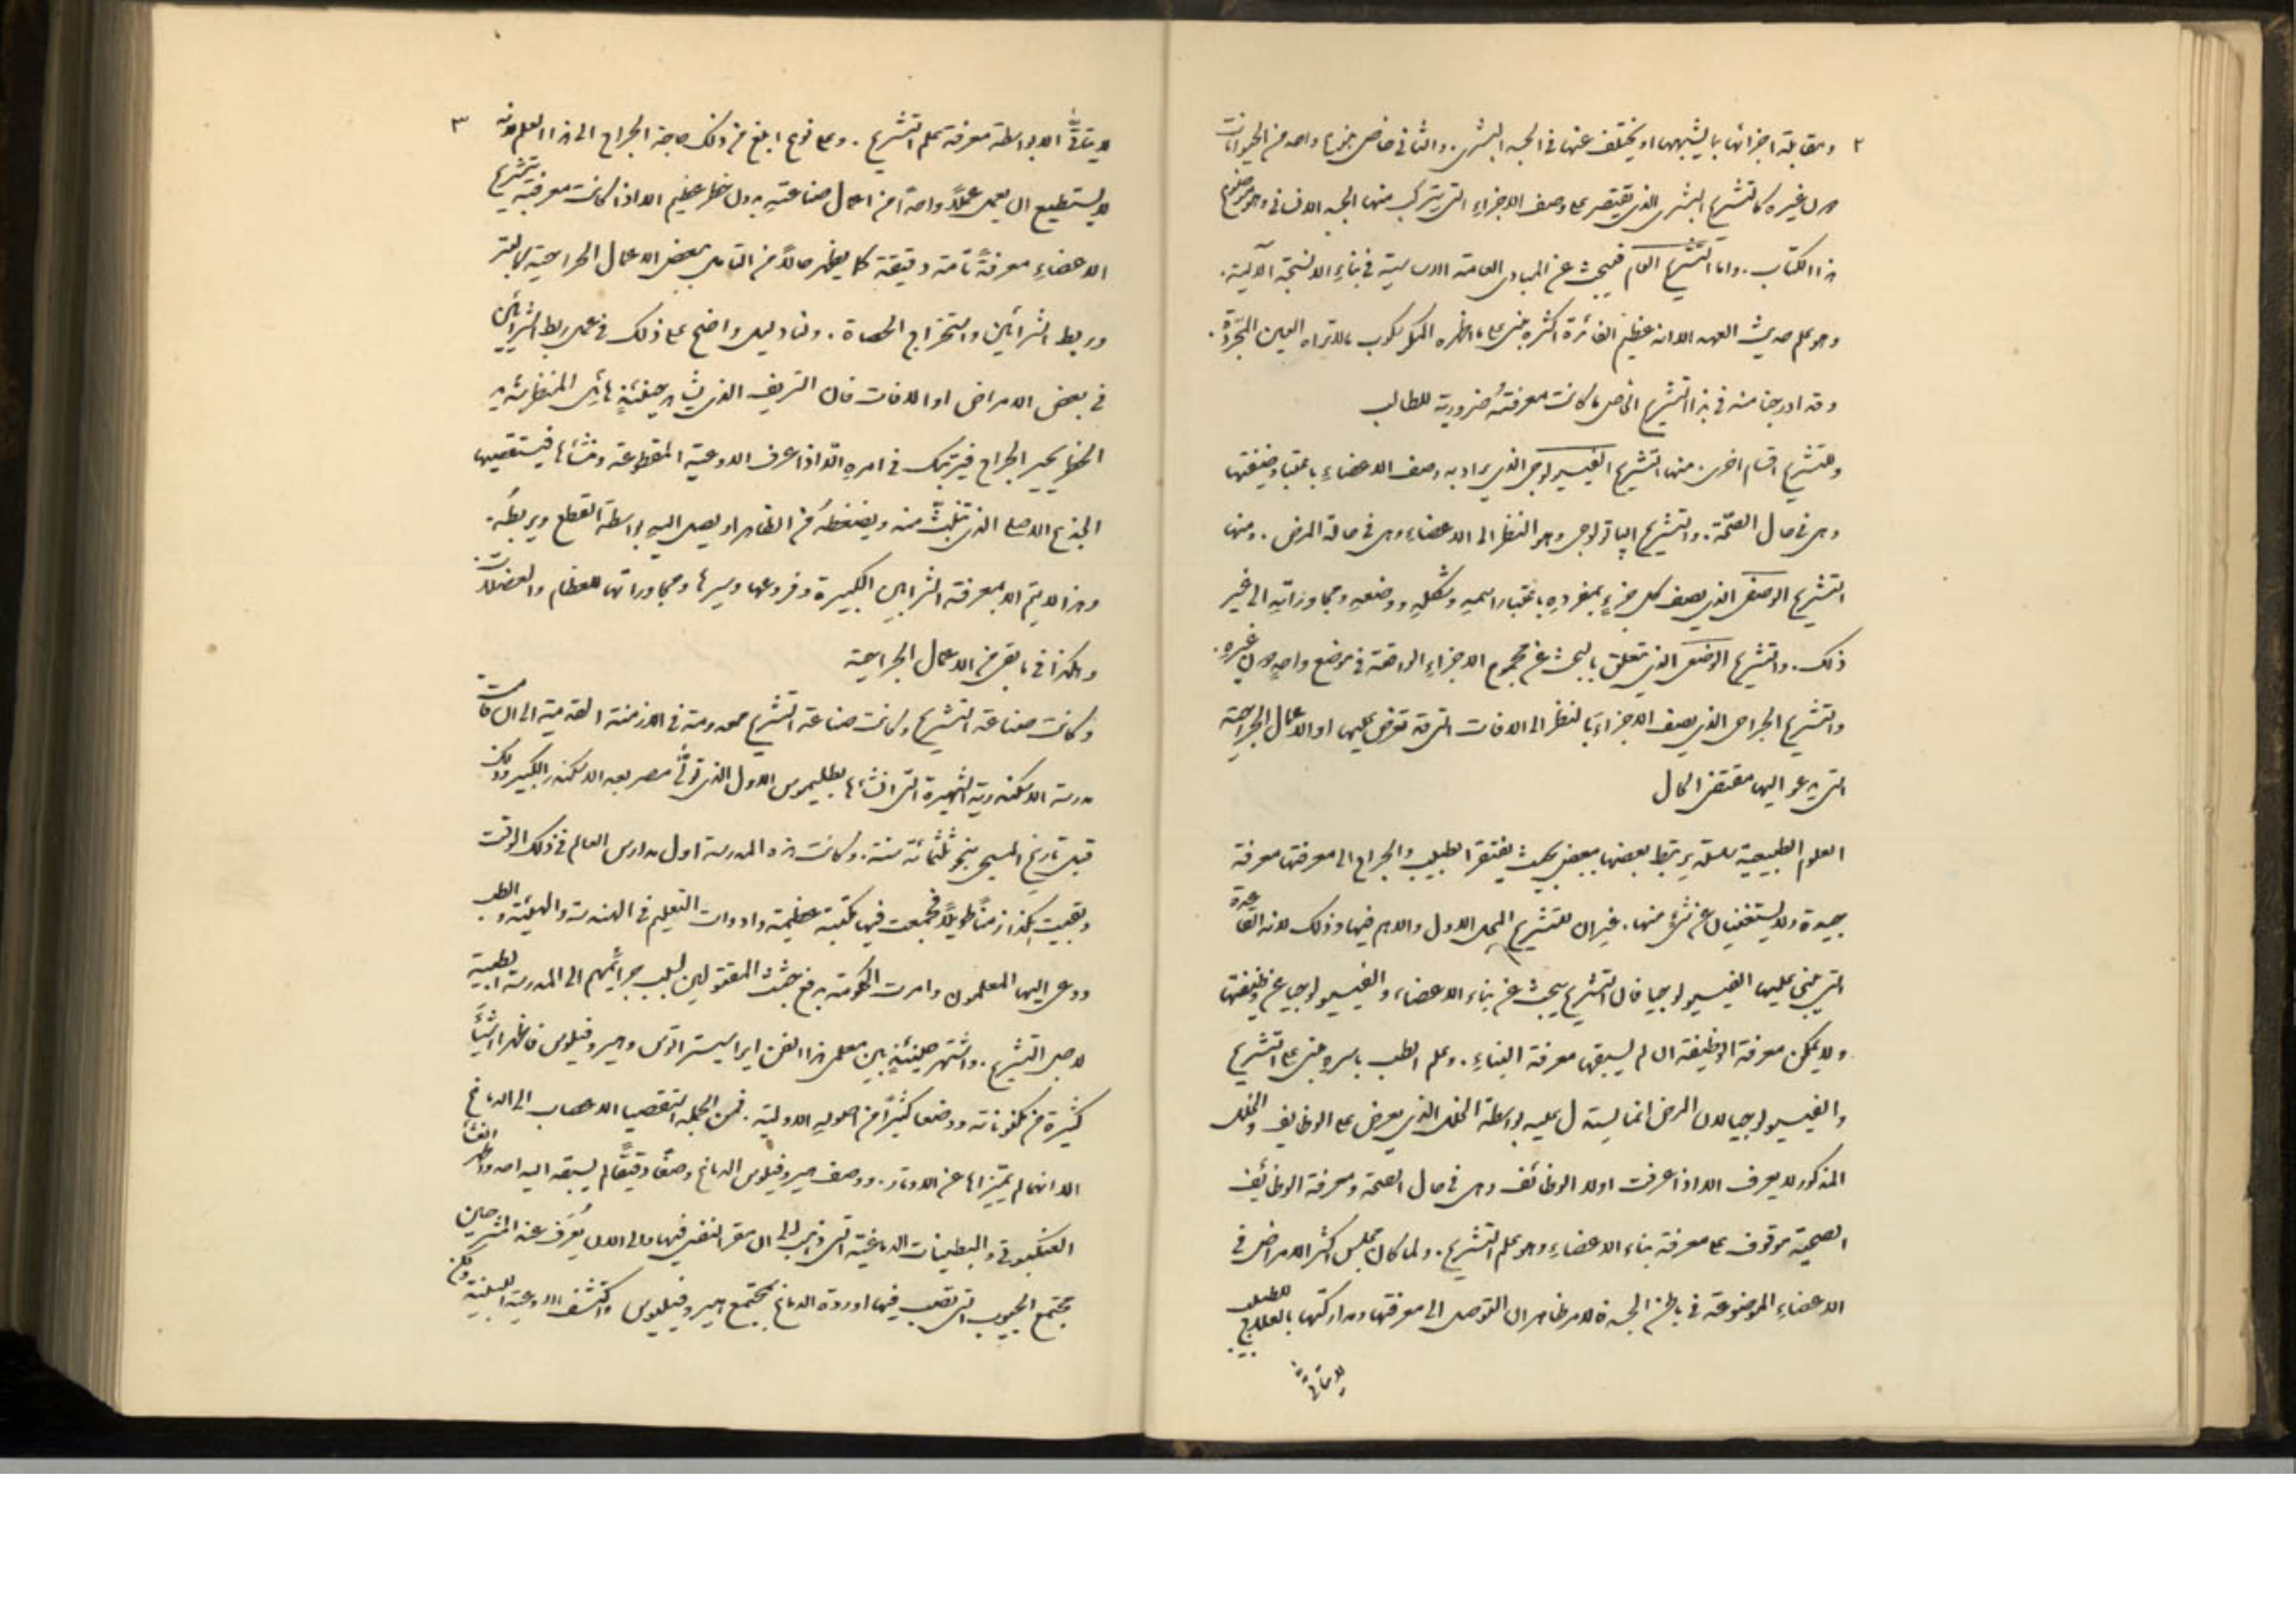 ٢
ومقابلة اجزائها بما يشبهها او يختلف عنها في الجسد البشري. والثاني خاص بنوع واحد من الحيوانات
دون غيره كالتشريح البشري الذي يقتصر على وصف الاجزاء التي يتركب منها الجسد الانساني وهو موضوع
هذا الكتاب. واما التشريح العام فيبحث عن المبادي العامة الاساسية في بناء الانسجة الآلية.
وهو علم حديث العهد الا انه عظيم الفائدة اكثره مبني على ما اظهره المكرسكوب مما لا تراه العين المجردة.
وقد ادرجنا منه في هذا التشريح الخاص ما كانت معرفتهُ ضرورية للطالب
وللتشريح اقسام اخرى. منها التشريح الفيسيولوجي الذي يراد به وصف الاعضاء باعتبار وظيفتها
وهي في حال الصحّة. والتشريح الباثولوجي وهو النظر الى الاعضاء وهي في حالة المرض. ومنها
التشريح الوصفي الذي يصف كل جزءٍ بمفردهِ باعتبار اسمهِ وشكلهِ ووضعهِ ومجاوراتهِ الى غير
ذلك. والتشريح الوضعي الذي يتعلق بالبحث عن مجموع الاجزاءِ الواقعة في موضع واحدٍ دون غيرهِ.
والتشريح الجراحي الذي يصف الاجزاء بالنظر الى الافات التي قد تعرض عليها او الاعمال الجراحية
التي يدعو اليها مقتضى الحال
العلوم الطبيعية سلسلة يرتبط بعضها ببعض بحيث يفتقر الطبيب والجراح الى معرفتها معرفة
جيدة ولا يستغنيان عن شيءٍ منها. غير ان للتشريح المحل الاول والاهم فيها وذلك لانه القاعدة
التي يبنى عليها الفيسيولوجيا فان التشريح يبحث عن بناء الاعضاء، والفيسيولوجيا عن وظيفتها
ولا يمكن معرفة الوظيفة ان لم يسبقها معرفة البناءِ. وعلم الطب باسره مبني على التشريح
والفيسيولوجيا لان المرض انما يستدل عليه بواسطة الخلل الذي يعرض على الوظايف والخلل
المذكور لا يعرف الا اذا عرفت اولا الوظائف وهي في حال الصحة ومعرفة الوظائف
الصحية موقوف على معرفة بناء الاعضاءِ وهو علم التشريح. ولما كان مجلس اكثر الامراض في
الاعضاءِ الموضوعة في باطن الجسد فالامر ظاهر ان التوصل الى معرفتها ومداركتها بالعلاج للطبيب
لا يتاتى
٣
لا يتاتّى الا بواسطة معرفة علم التشريح. وعلى نوع ابلغ من ذلك حاجة الجراح الى هذا العلم لانه
لا يستطيع ان يعمل عملاً واحداً من اعمال صناعتهِ بدون خطر عظيم الا اذا كانت معرفته بتشريح
الاعضاءِ معرفةً تامة دقيقة كما يظهر حالاً من التامل ببعض الاعمال الجراحية كالبتر
وربط الشرائين واستخراج الحصاة. ولنا دليل واضح على ذلك في عمل ربط الشرائين
في بعض الامراض او الافات فان النزيف الذي يشاهد حينئذٍ هائل المنظر شديد
الخطر يحير الجراح فيرتبك في امرهِ الّا اذا عرف الاوعية المقطوعة ومنشأها فيستقصيها
الجذع الاصلي الذي تنبثّ منه ويضغطهُ من الظاهر او يصل اليهِ بواسطة القطع ويربطهُ.
وهذا لا يتم الا بمعرفة الشرايين الكبيرة وفروعها وسيرها ومجاوراتها للعظام والعضلات.
وهكذا في ما بقي من الاعمال الجراحية
وكانت صناعة التشريح معدومة في الازمنة القديمة الى ان قامت
مدرسة الاسكندرية الشهيرة التي انشأها بطليموس الاول الذي تولّى مصر بعد الاسكندر الكبير وذلك
قبل تاريخ المسيح بنحو ثلثمائة سنة. وكانت هذه المدرسة اول مدارس العالم في ذلك الوقت
وبقيت هكذا زمناً طويلاً فجمعت فيها مكتبة عظيمة وادوات التعليم في الهندسة والهيئة والطب.
ودعي اليها المعلمون وامرت الحكومة برفع جثث المقتولين لسبب جرائمهم الى المدرسة الطبية
لاجل التشريح. واشتهر حينئذٍ بين معلمي هذا الفن ايراسيستراتوس وهيروفيلوس فاظهرا اشياءً
كثيرة من مكنوناته ووضعا كثيراً من اصوله الاولية. فمن الجملة استقصيا الاعصاب الى الدماغ
الا انهما لم يميّزاها عن الاوتار. ووصف هيروفيلوس الدماغ وصفًا دقيقًا لم يسبقه اليه احد واظهر الغشاء
العنكبوتي والبطينات الدماغية التي ذهب الى ان مقر النفس فيها والى الان يُعرَف عند المشرحين
مجتمع الجيوب التي تصب فيها اوردة الدماغ بمجتمع هيروفيلوس واكتشف الاوعية اللبنية ولكن